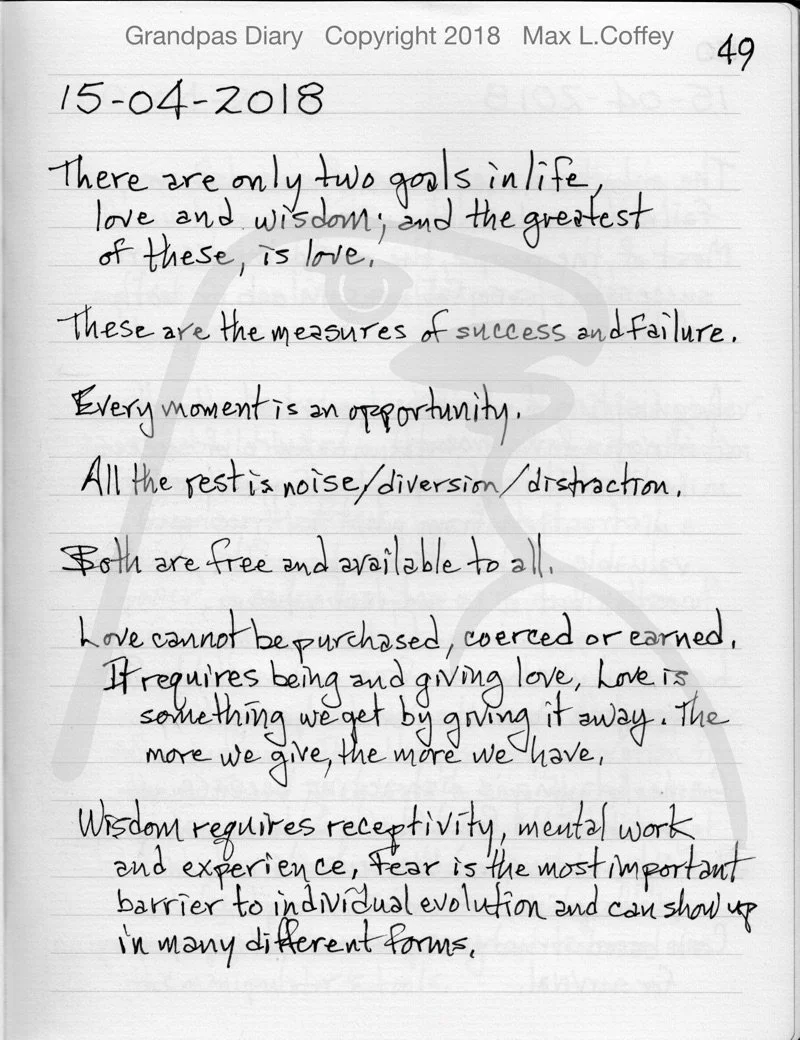 Grandpas Diary Copyright 2018 Max L.Coffey
49
15-04-2018
There are only two goals in life,
love and wisdom; and the greatest
of these, is love.
These are the measures of success and failure.
Every moment is an opportunity.
All the rest is noise/diversion/distraction.
Both are free and available to all.
Love cannot be purchased, coerced or earned.
It requires being and giving love, Love is
something we get by giving it away. The
more we give, the more we have.
Wisdom requires receptivity, mental work
and experience, Fear is the most important
barrier to individual evolution and can show up
in many different forms.